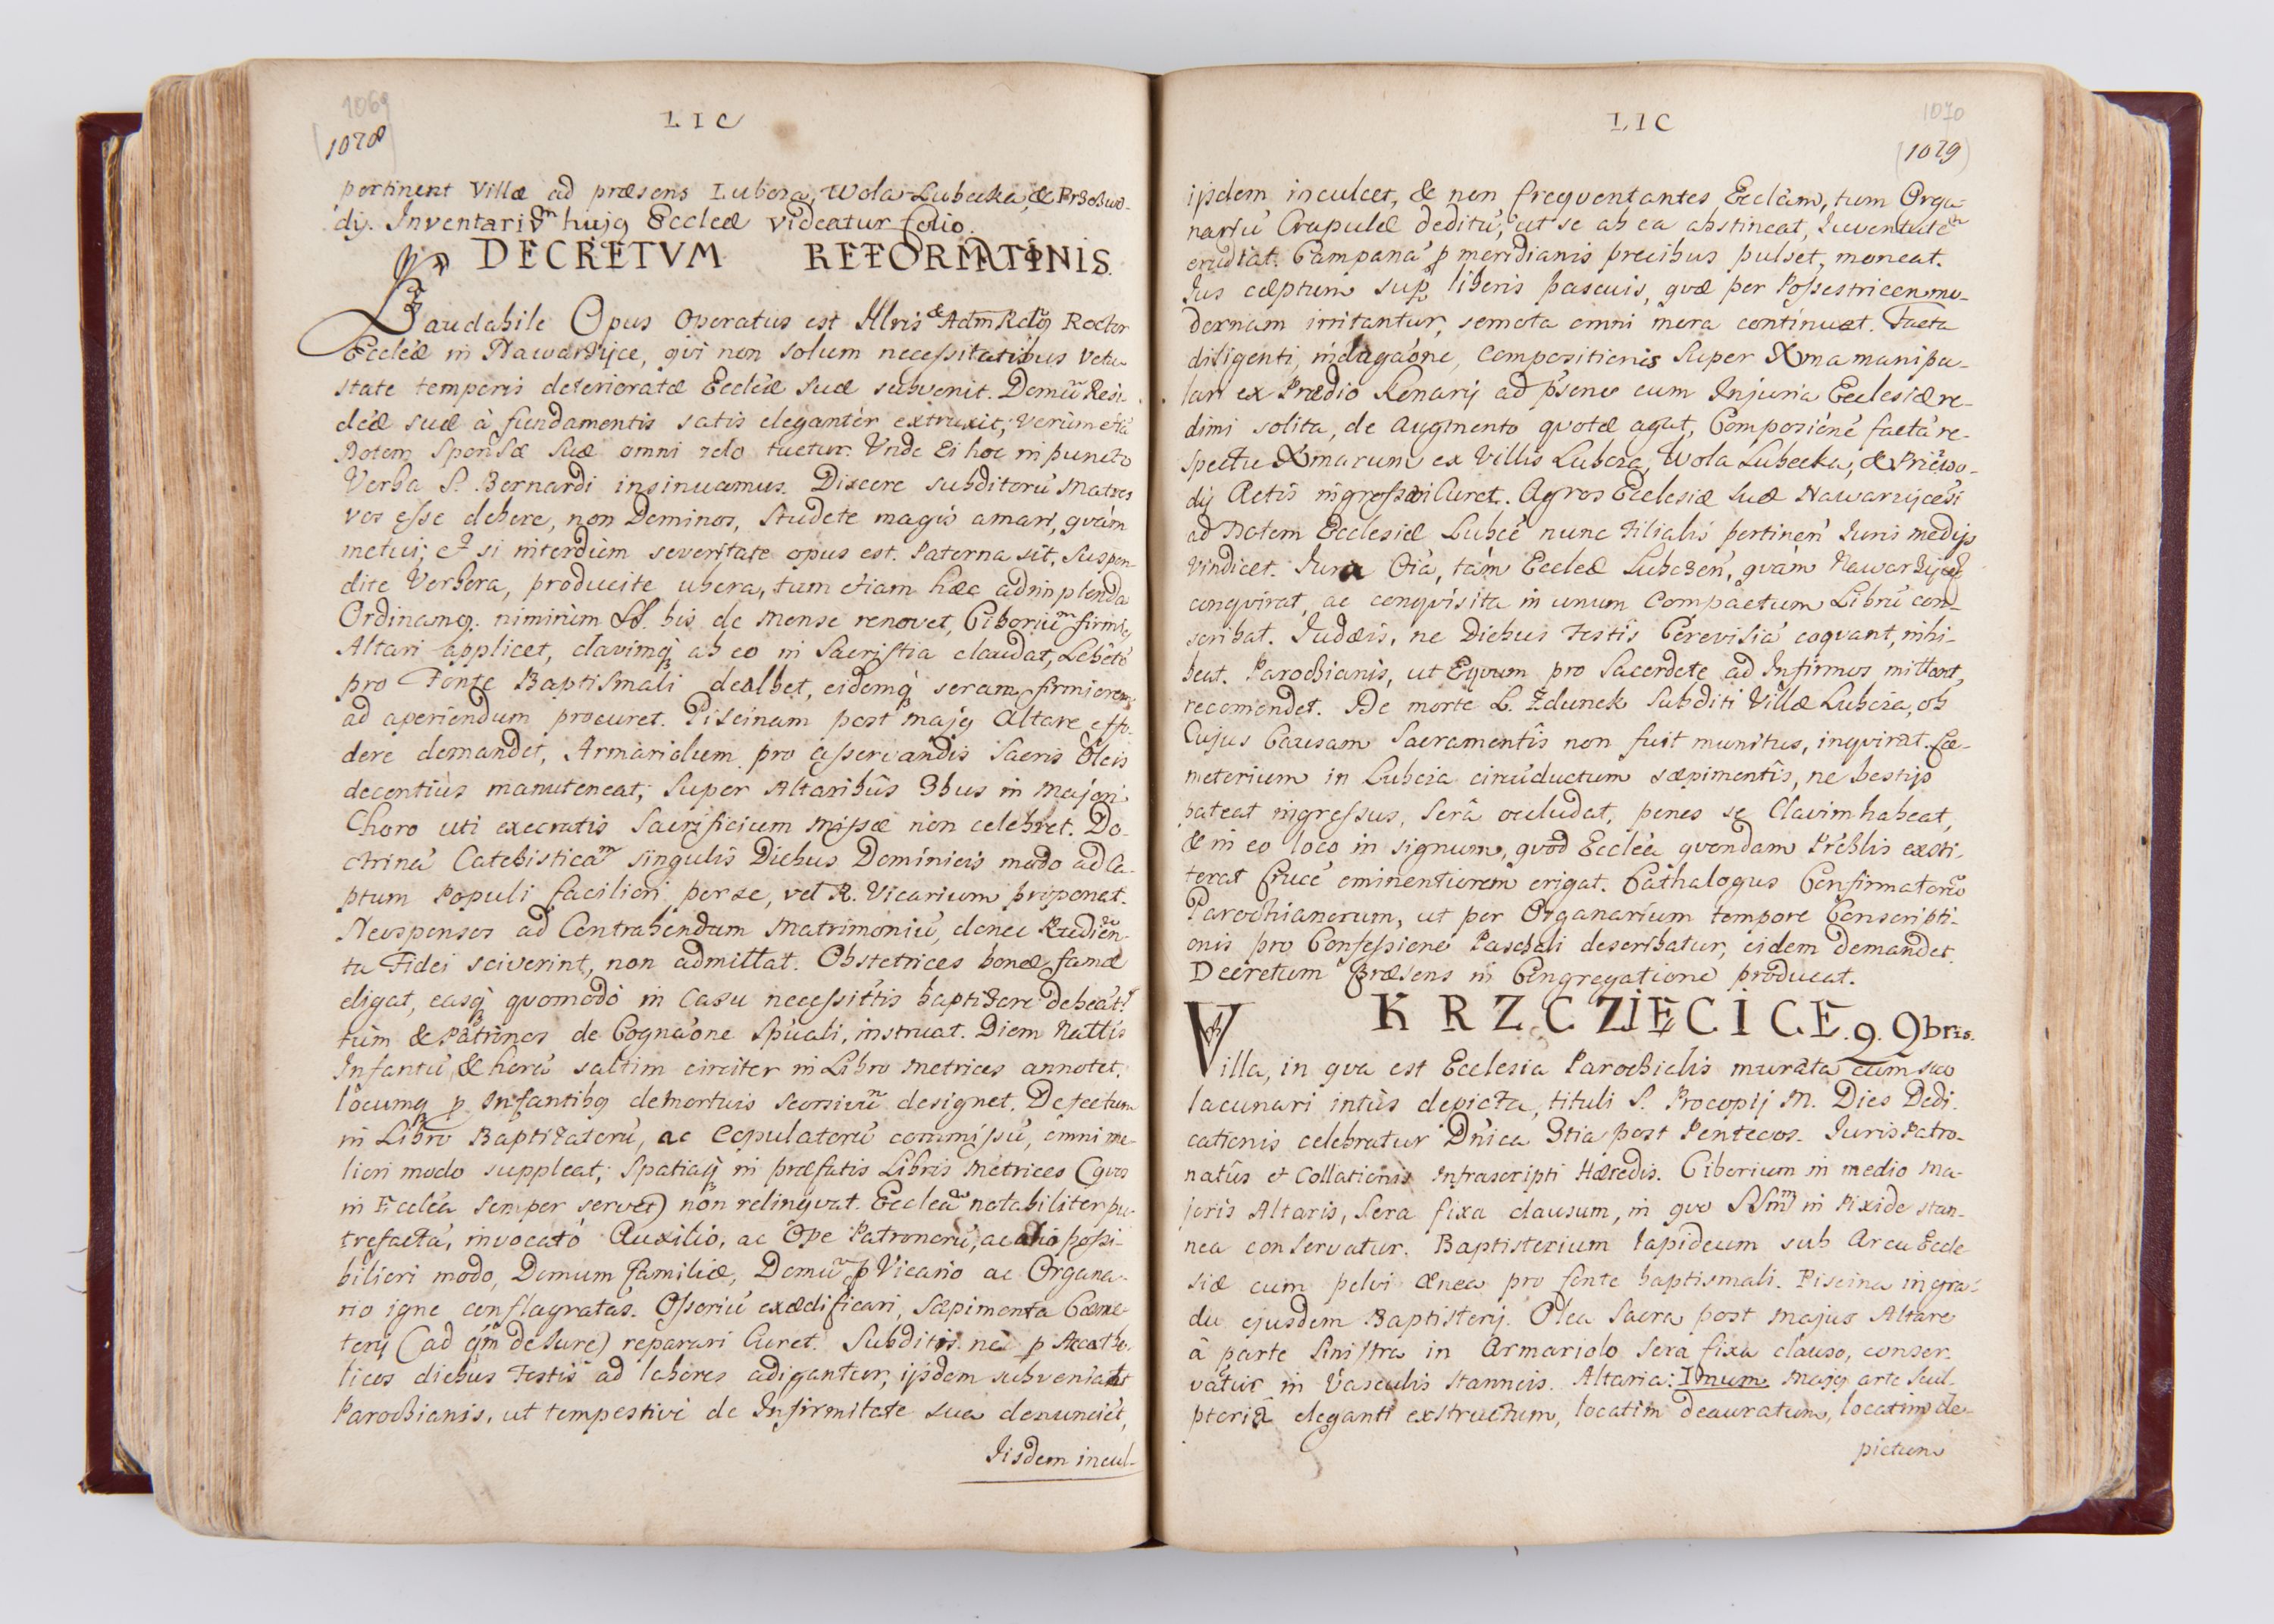 1069
1078
LIC
pertinent Villæ ad præsens Lubcza, Wola Lubecka, & Przeŝwo-
dij. Inventariũ hujq Eccleæ videatur folio.
DECRETVM REFORMATIONIS.
Laudabile Opus operatus est Illris & Adm Rdq Rector
Eccleæ in Nawarzyce, qvi non solum necessitatibus vetu-
state temporis deterioratæ Eccleæ suæ subvenit. Domũ Resi-
deæ suæ à fundamentis satis eleganter extruxit; verùm etiã
Dotem Sponsæ suæ omni zelo tuetur. Vnde Ei hoc in puncto
Verba S. Bernardi insinuamus. Discere subditorũ Matres
vos esse debere, non Dominos, studete magis amari, qvàm
metui; et si interdùm severitate opus est. Paterna sit, suspen-
dite Verbera, producite ubera, tum etiam hæc adimplenda
Ordinamq. nimirùm SS. bis de Mense renovet, Ciboriũm firmiq
Altari applicet, clavimq ab eo in Sacristia claudat, Lebetẽ
pro Fonte Baptismali dealbet, eidemq seram firmiorem
ad aperiendum procuret. Piscinam post majq Altare effo-
dere demandet, Armariolum pro asservandis Sacris Oleis
decentiùs manuteneat; Super Altaribus 3bus in Majori
Choro uti execratis Sacrificium Missæ non celebret. Do-
ctrinã Catehisticam singulis Diebus Dominicis modo ad Ca-
ptum Populi faciliori per se, vel R. Vicarium proponat.
Neosponsos ad Contrahendum Matrimoniũ, donec Rudimen-
ta Fidei sciverint, non admittat. Obstetrices bonæ famæ
eligat, easq quomodò in Casu necessittis baptizare debeãt
tùm & Patrinos de Cognaone Spuali, instruat. Diem Nattis
Infantũ & horã saltim circiter in Libro Metrices annotet,
locumq p Infantibq demortuis seorsivũ designet. Defectum
in Libro Baptizatorũ, ac Copulatorũ commissũ, omni me-
liori modo suppleat; Spatiaq in præfatis Libris Metrices (quos
in Ecclea semper servet) non relinqvat. Eccleã notabiliter pu-
trefactã, invocatò Auxilio, ac Ope Patronorũ, ac alio possi-
biliori modo, Domum familiæ, Domũ p Vicario ac Organa-
rio igne conflagratas. Ossoriũ exædificari, sæpimenta Cæme-
terij (ad qm de Iure) reparari Curet. Subditis ne p Acatho-
licos diebus Festis ad labores adigantur, ijsdem subveniat
Parochianis, ut tempestivè de Infirmitate sua denunciẽt,
Iisdem incul-
1070
1079
LIC
ijsdem inculcet, & non freqventantes Ecclam, tum Orga-
nariũ Crapulæ deditũ, ut se ab ea abstineat, Iuventutẽm
erudiat. Campanã p meridianis precibus pulset, moneat.
Ius cæptum sup liberis pascuis, qvæ per Possestricem mo-
dernam irritantur, semota omni mora continuet. Facta
diligenti indagaone, Compositionis super Xma manipu-
lari ex Prædio Konary ad psens cum Injuria Ecclesiæ re-
dimi solita, de Augmento quotæ agat, Composionẽ factã re-
spectu Xmarum ex Villis Lubcza, Wola Lubecka, & Priewo-
dij Actis ingrossari Curet. Agros Ecclesiæ suæ Nawarzyceñ
ad Dotem Ecclesiæ Lubcẽ nunc Filialis pertineñ Iuris medijs
vindicet. Iura Oia, tàm Eccleæ Lubczeñ, qvàm Nawarzyceñ
conqvirat, ac conqvisita in unum Compactum Librũ con-
scribat. Iudæis, ne Diebus Festis Cerevisiã coqvant, inhi-
beat. Parochianis, ut Eqvum pro Sacerdote ad Infirmos mittant,
recomendet. De morte L. Zdunek Subditi Villæ Lubcza, ob
Cujus Causam Sacramentis non fuit munitus, inqvirat. Cæ-
meterium in Lubcza circũductum sæpimentis, ne bestijs
pateat ingressus, serâ occludat, penes se Clavim habeat,
& in eo loco in signum, qvod Ecclea qvondam Prchlis exsti-
terat Crucẽ eminentiorem erigat. Cathalogus Confirmatorũ
Parochianorum, ut per Organarium tempore Conscripti-
onis pro Confessione Paschali describatur, eidem demandet.
Decretum Præsens in Congregatione producat.
KRZCZIĘCICE. 9. 9bris.
Villa, in qva est Ecclesia Parochialis murata cum suo
lacunari intùs depicta, tituli S. Procopij M. Dies Dedi-
cationis celebratur Dnica 3tia post Pentecos. Iuris Patro-
natûs et Collationis Infrascripti Hæredis. Ciborium in medio Ma-
joris Altaris, Sera fixa clausum, in qvo SSmm in Pixide stan-
nea conservatur. Baptisterium lapideum sub Arcu Eccle-
siæ cum pelvi ænea pro fonte baptismali. Piscina in gra-
du ejusdem Baptisterij. Olea Sacra post Majus Altare
â parte Sinistra in Armariolo Sera fixa clauso, conser-
vatur in Vasculis stanneis. Altaria: Imum Majq arte Scul-
ptoria eleganti exstructum, locatim deauratum, locatim de-
pictum